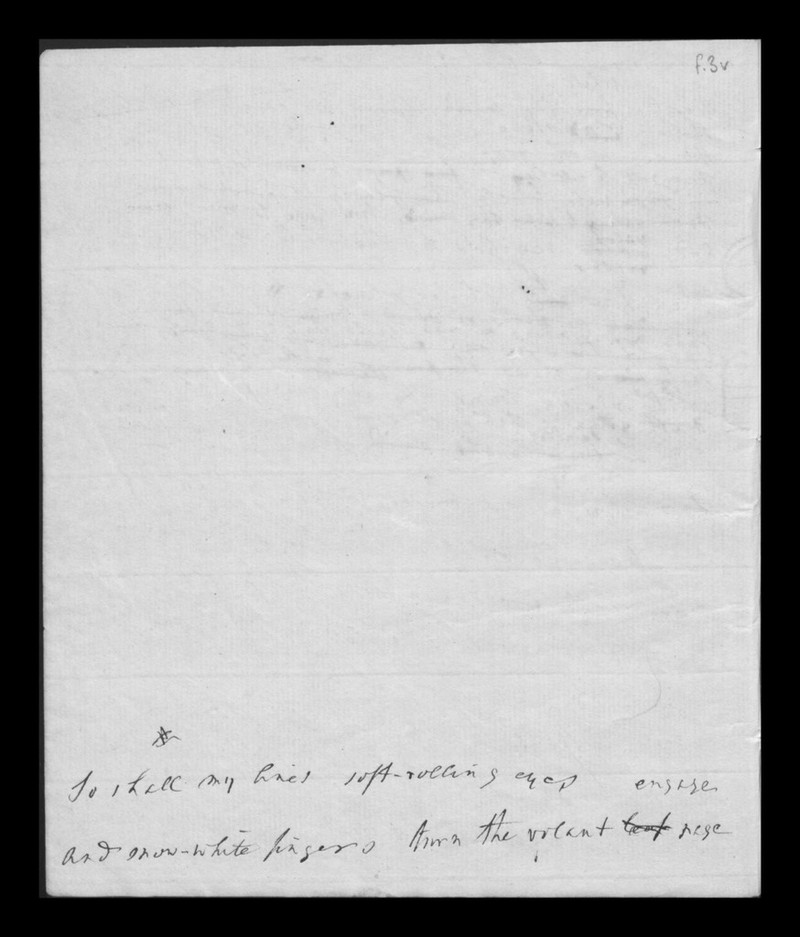 f.3v
So shall my lines soft-rolling eyes engage
and snow-white fingers turn the volant leaf page